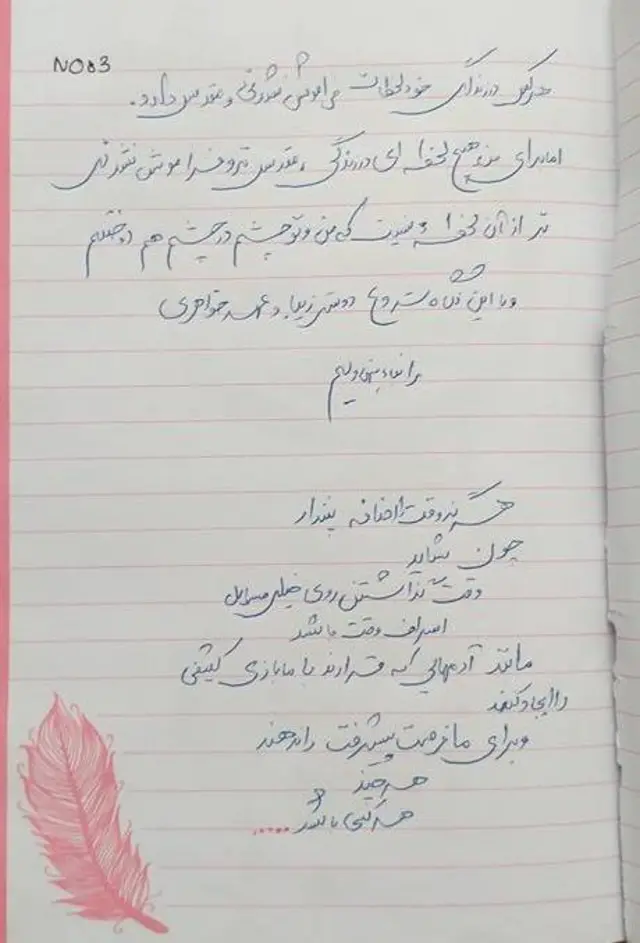 NO83
هرکس در زندگی خود لحظات فراموش نشدنی و مقدس دارد.
اما برای من هیچ لحظه ای در زندگی، مقدس تر و فراموش نشدنی
تر از آن لحظه نیست که من و تو چشم در چشم هم دوختیم
و با این نگاه شروع دوستی زیبا و خواهری
را بنا نهادیم
هرگز وقت را اضافه پندار
چون شاید
وقت گذاشتن روی خیلی مسایل
اسراف وقت باشد
مانند آدمهایی که قرارند با ما بازی کثیفی
را ایجاد کنند
و برای ما فرصت پیشرفت را ندهند
هر چند
هر کسی باشد .....